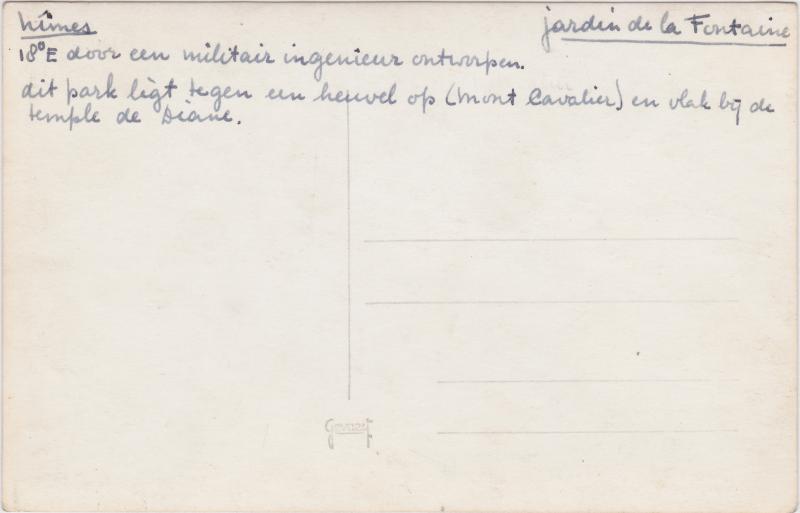 Nîmes
jardin de la Fontaine
18°E door een militair ingenieur ontworpen.
dit park ligt tegen een heuvel op (Mont Cavalier) en vlak bij de
temple de Diane.
Gevaert